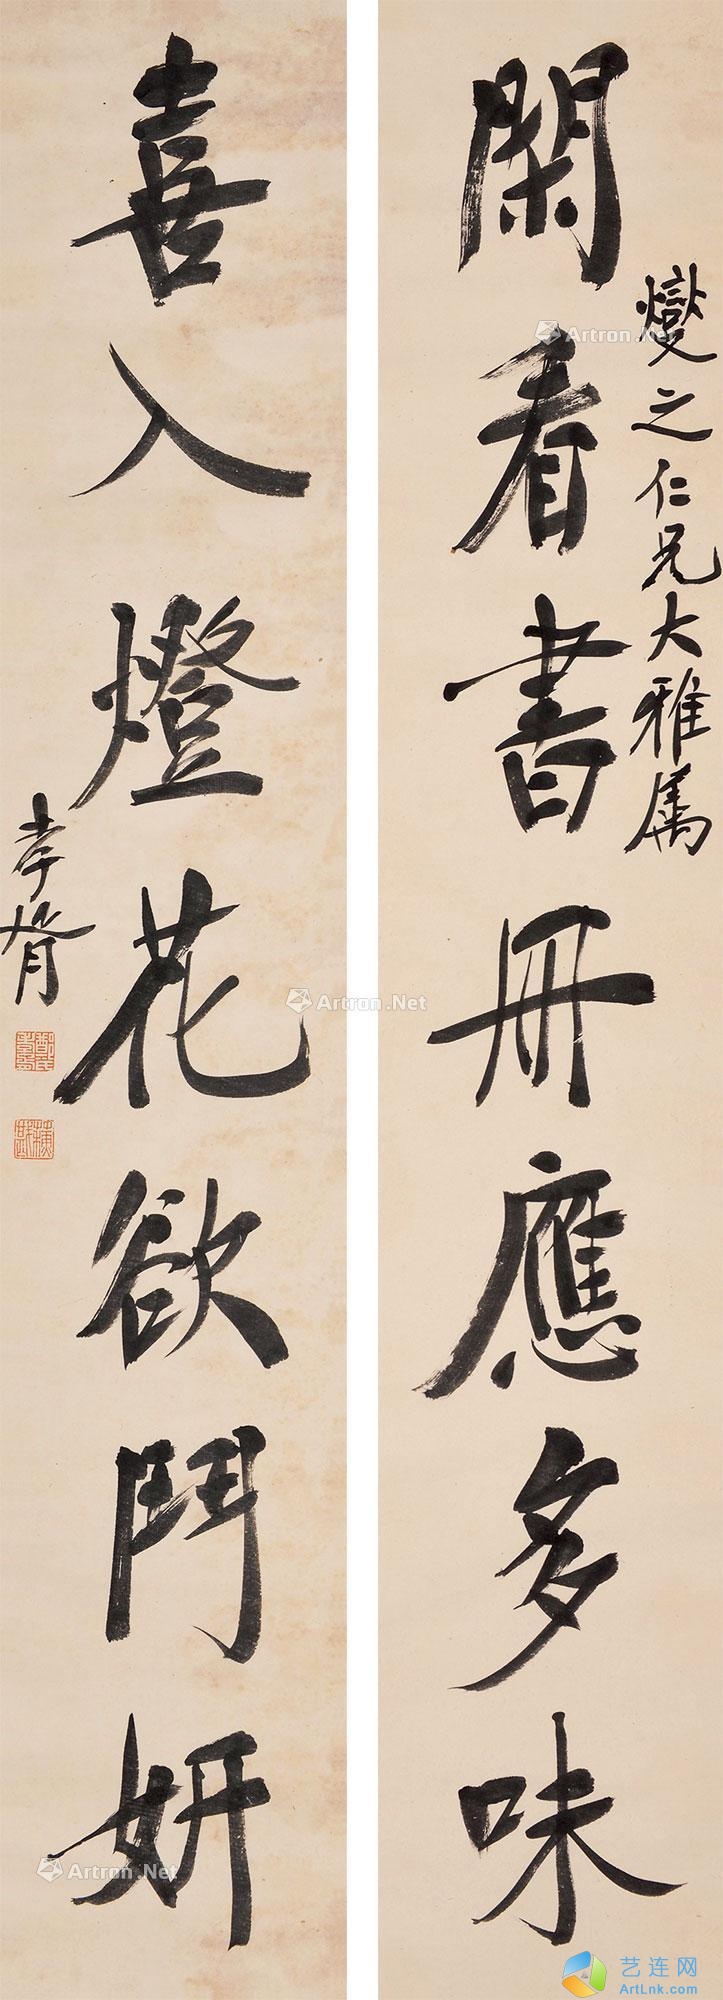 閑看書冊應多味
燮之仁兄大雅属
喜入燈花欲鬥妍
孝胥
Artron.Net
Artron.Net
Artron.Net
艺连网
ArtLink.com